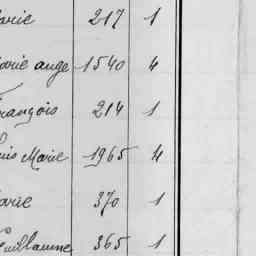 arie 217 1
arie ange 1540 4
rançois 214 1
uis Marie 1965 4
arie 370 1
Guillaume 365 1